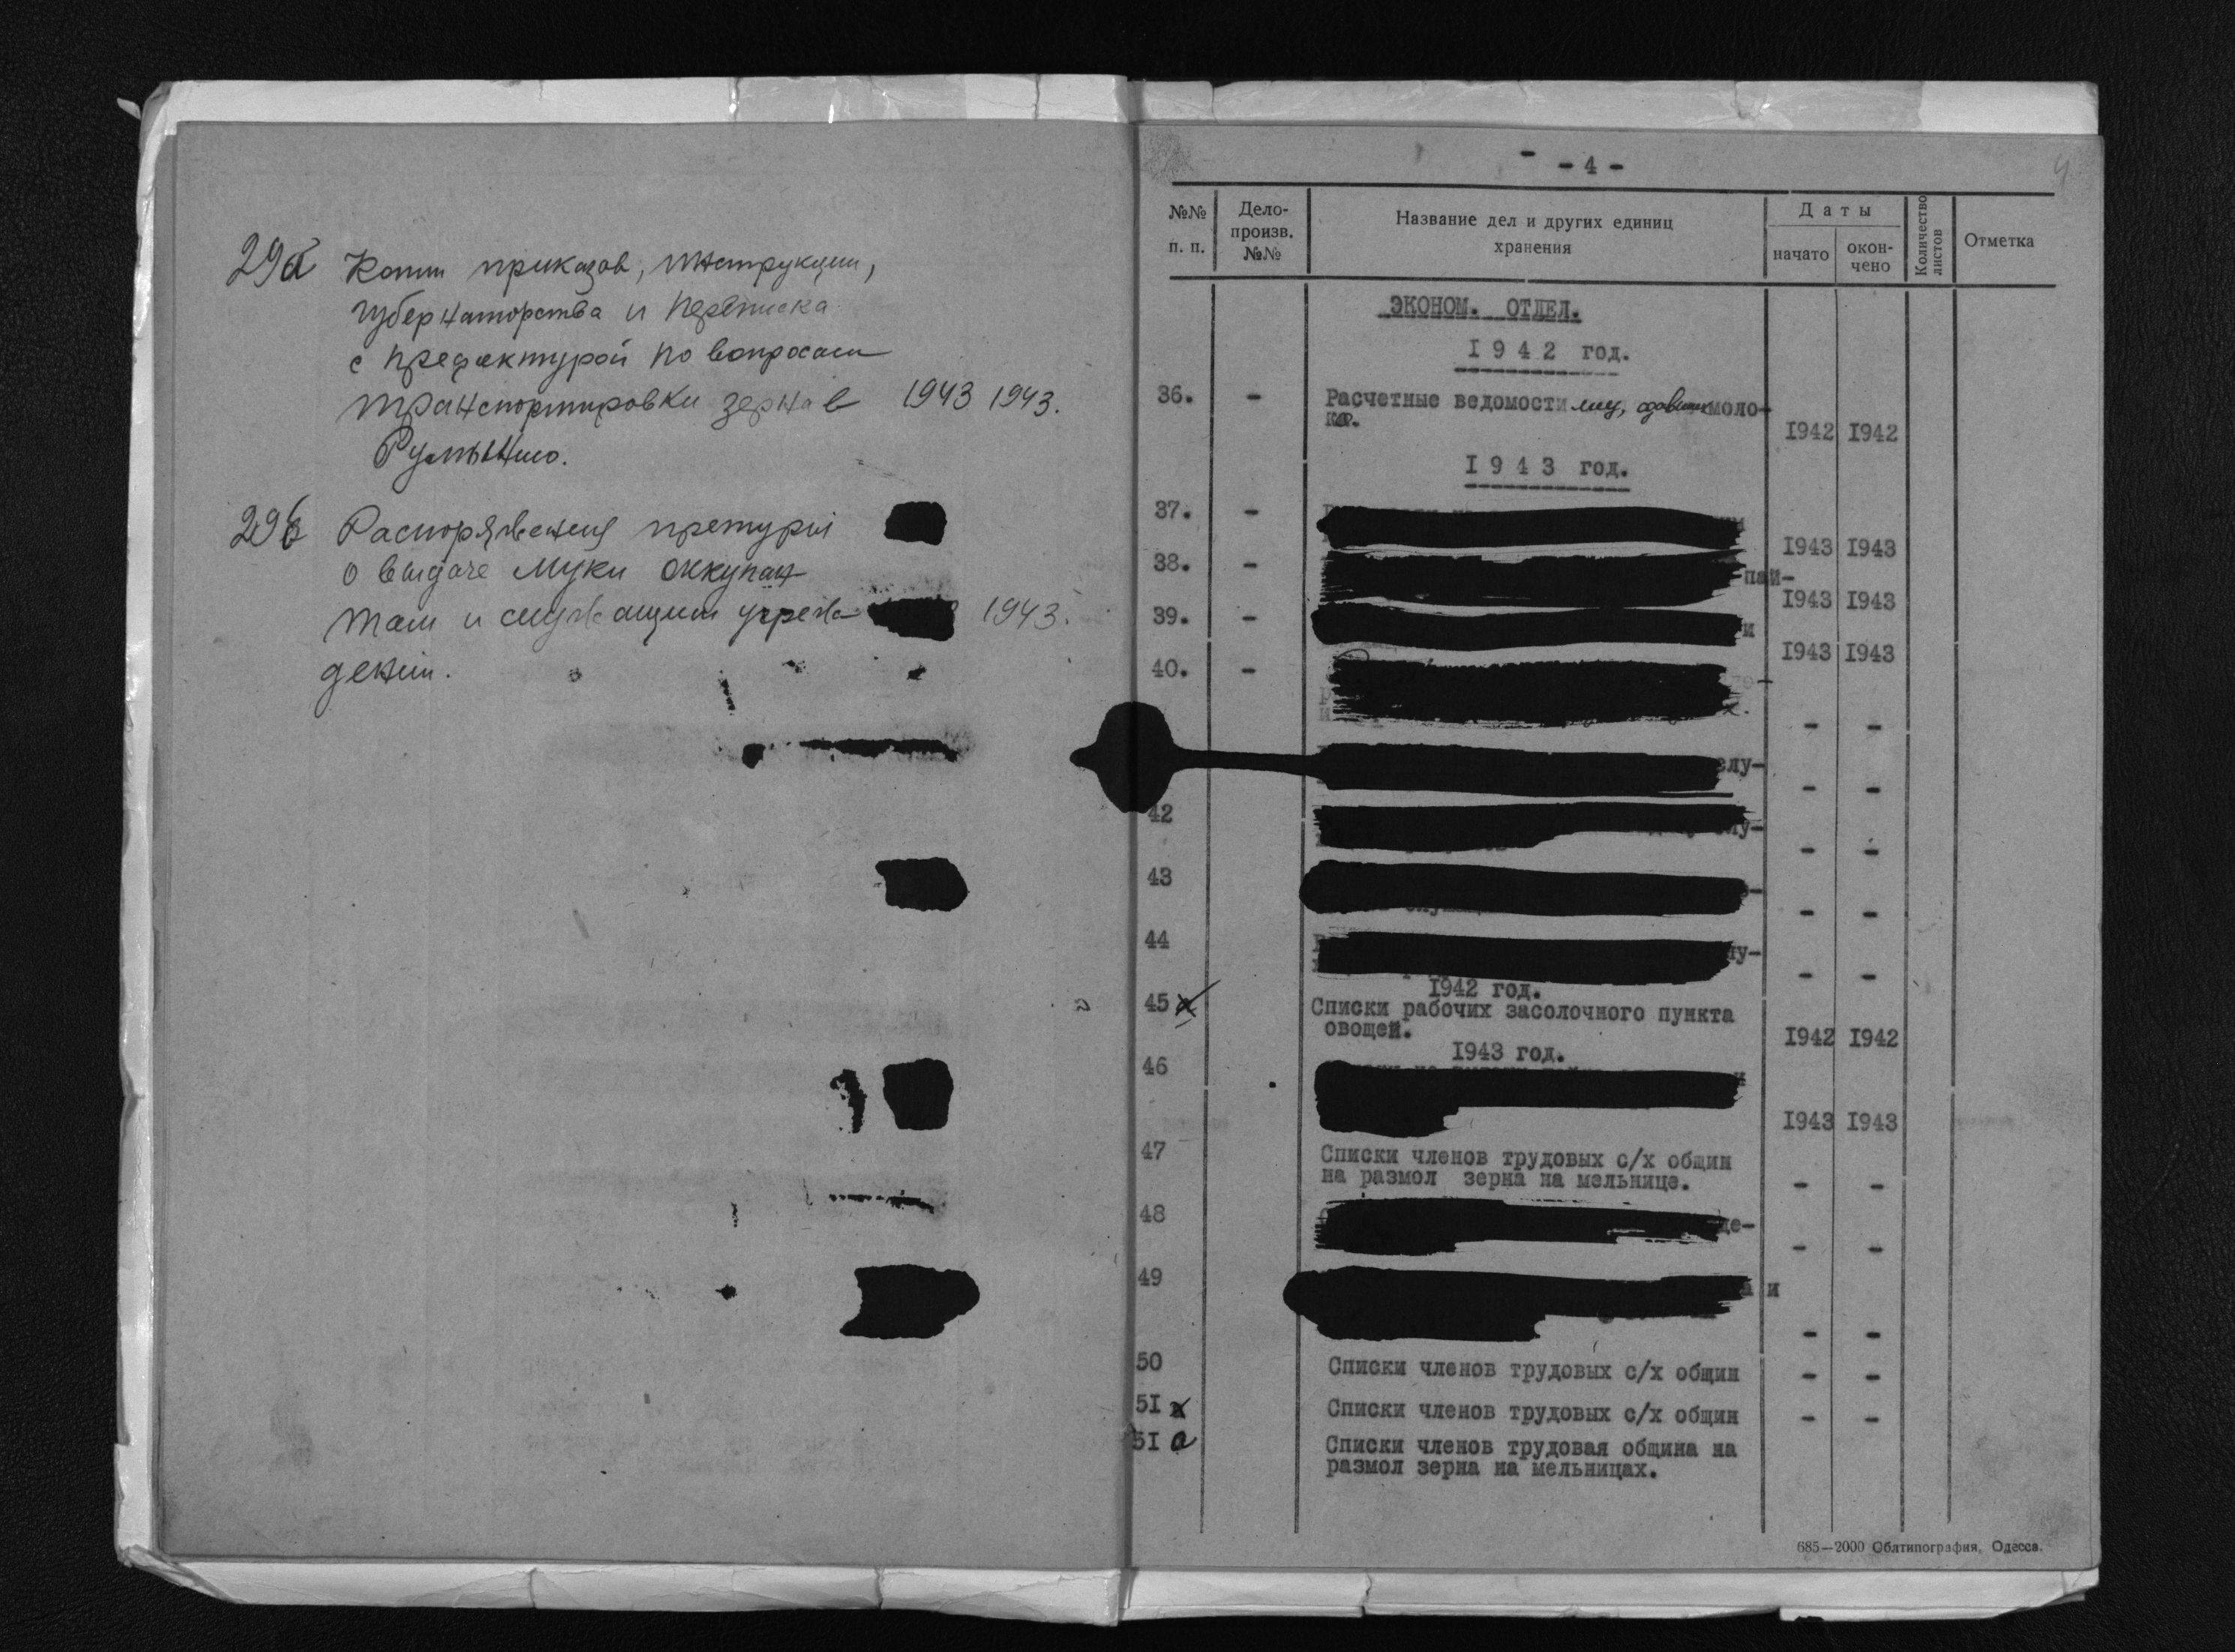 29а Копии приказов, инструкции,
губернаторства и переписка
с префектурой по вопросам
транспортировки зерна в 1943 1943.
Румынию.
29б Распоряжения претуры
о выдаче муки оккупан
там и служащим учреж- 1943.
дений.
- 4 -
4
№№ п. п.
Дело-произв. №№
Название дел и других единиц хранения
Даты
начато
окон-чено
Количество листов
Отметка
ЭКОНОМ. ОТДЕЛ.
I 9 4 2 год.
36. - Расчетные ведомости лиц, сдавших моло-
ко. I942 I942
I 9 4 3 год.
37. - I943 I943
38. - пай-
I943 I943
39. - и
I943 I943
40. -
- -
слу-
- -
42 лу-
- -
43
- -
44 лу-
- -
I942 год.
45 Списки рабочих засолочного пункта
овощей. I942 I942
I943 год.
46
I943 I943
47 Списки членов трудовых с/х общин
на размол зерна на мельнице. - -
48 де-
- -
49 а и
- -
50 Списки членов трудовых с/х общин - -
5I Списки членов трудовых с/х общин - -
5I а Списки членов трудовая община на
размол зерна на мельницах.
685—2000 Облтипография, Одесса.